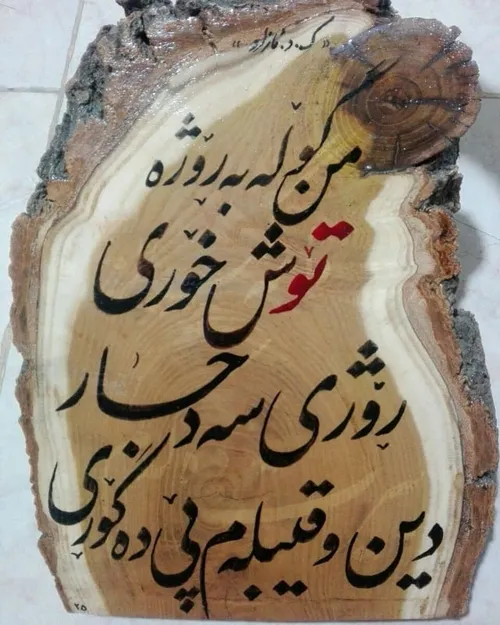 ک . د .
من گوڵە بەڕۆژە
تۆش خۆری
ڕۆژی سەد جار
دین و قیبلەم پێ دەگۆڕی
٢٥